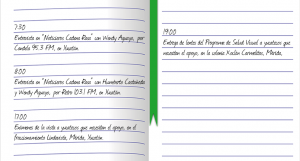 7:30
Entrevista en "Noticieros Cadena Rasa" con Wendy Aguayo, por
Candela 95.3 FM, en Yucatán.
8:00
Entrevista en "Noticieros Cadena Rasa" con Humberto Castañeda
y Wendy Aguayo, por Retro 103.1 FM, en Yucatán.
17:00
Exámenes de la vista a yucatecos que necesitan el apoyo, en el
fraccionamiento Lindavista, Mérida, Yucatán.
19:00
Entrega de lentes del Programa de Salud Visual a yucatecos que
necesitan el apoyo, en la colonia Xoclan Carmelitas, Mérida,
Yucatán.